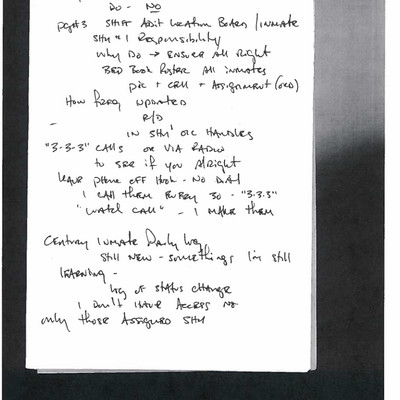 DO - NO
pg#3 SHIFT Adit Location Board / INMATE
SHU #1 Responsibility
Why DO → ENSURE All Right
BED Book Roster All inmates
pic + CELL + Assignment (
How freq updated
R/D
-
IN SHU OIC HANDLES
"3-3-3" CALLS or VIA RADIO
to SEE if you Alright
leave phone off Hook - NO DIAl
I CAll them EVERY 30 - "3.3.3"
"WATCH CALL" - I MAKE them
CENTURY INMATE Daily Log,
Still NEW - somethings I'm still
LEARNING -
log of STATUS CHANGE
I DON'T HAVE ACCESS
only those Assigned SHU